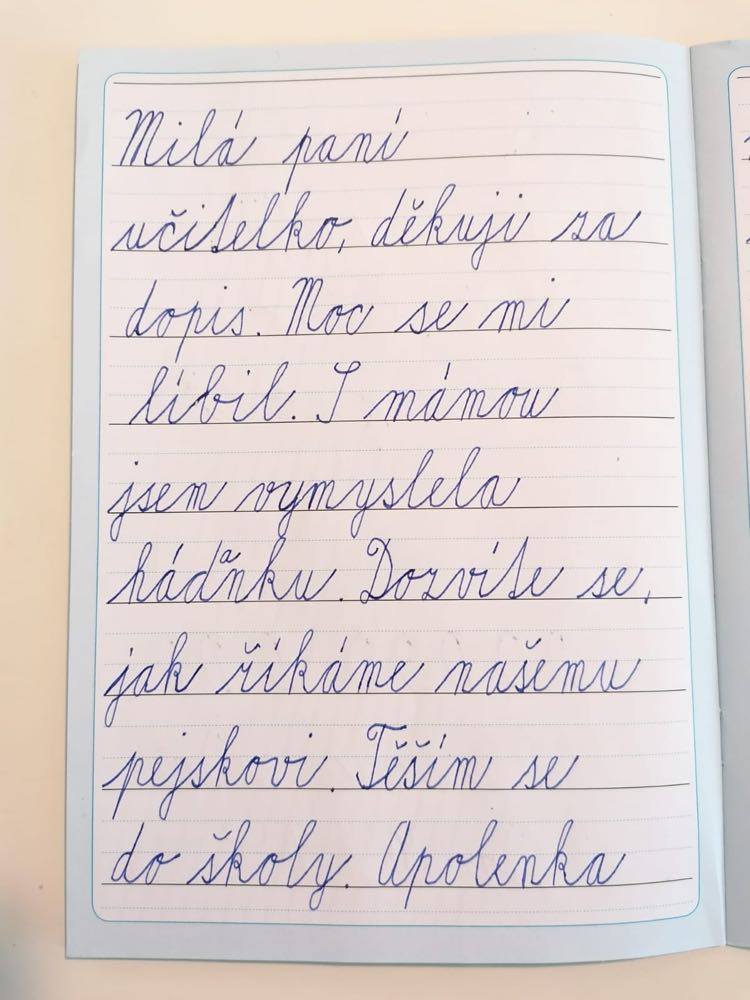 Milá paní
učitelko, děkuji za
dopis. Moc se mi
líbil. S mámou
jsem vymyslela
hádanku. Dozvíte se,
jak říkáme našemu
pejskovi. Těším se
do školy. Apolenka